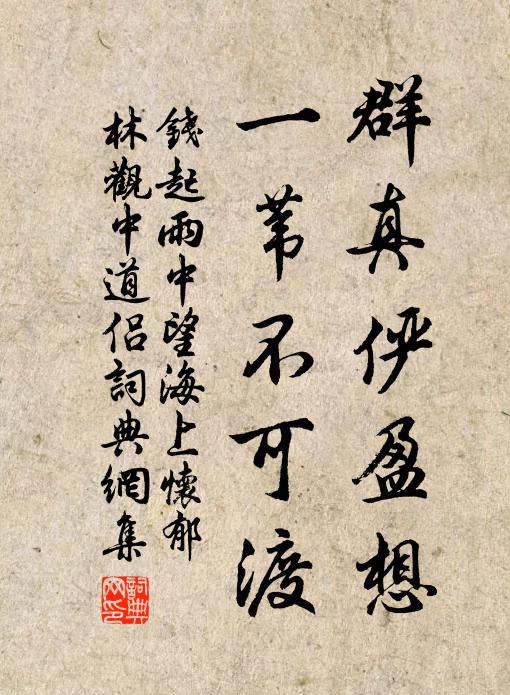 群真俨盈想
一苇不可渡
錢起雨中望海上懷郁
林觀中道侣詞典網集
詞典
网印